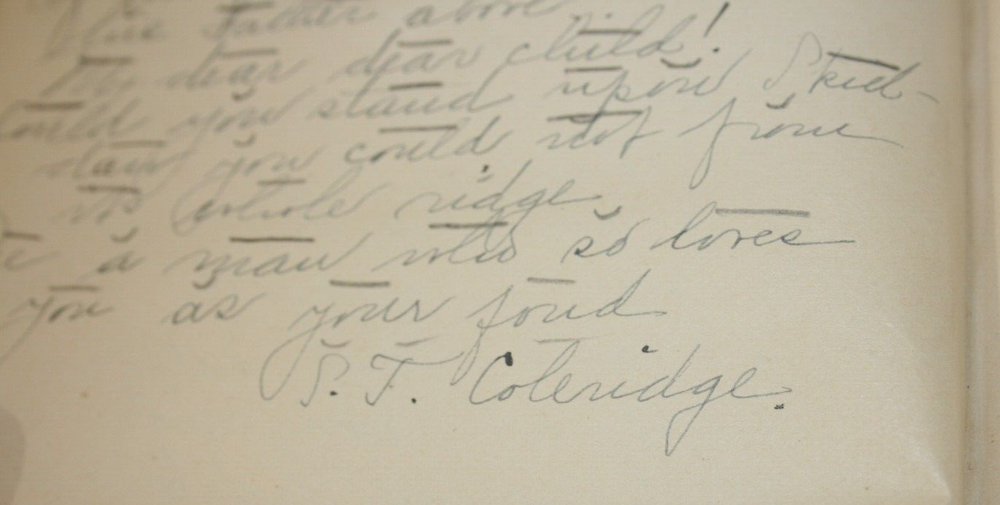 Father above
My dear dear child!
Could you stand upon Skid-
daw you could not from
its whole ridge
See a man who so loves
you as your fond
S. T. Coleridge.